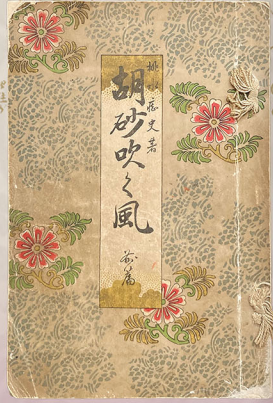 桃水痴史著
胡砂吹く風
前篇